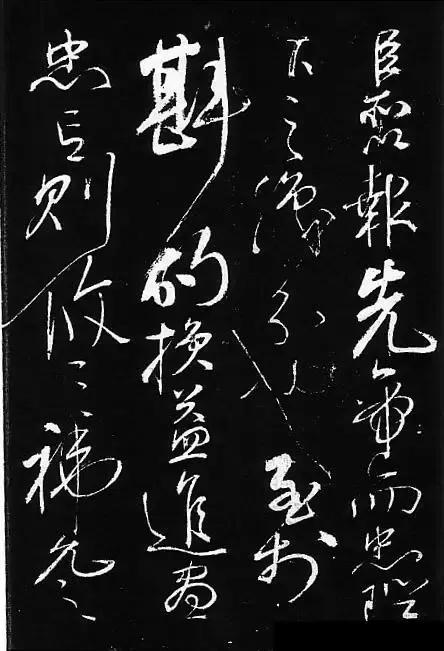 臣所以報先帝而忠陛
下之職分也至於
斟酌損益進盡
忠言則攸之禕允之